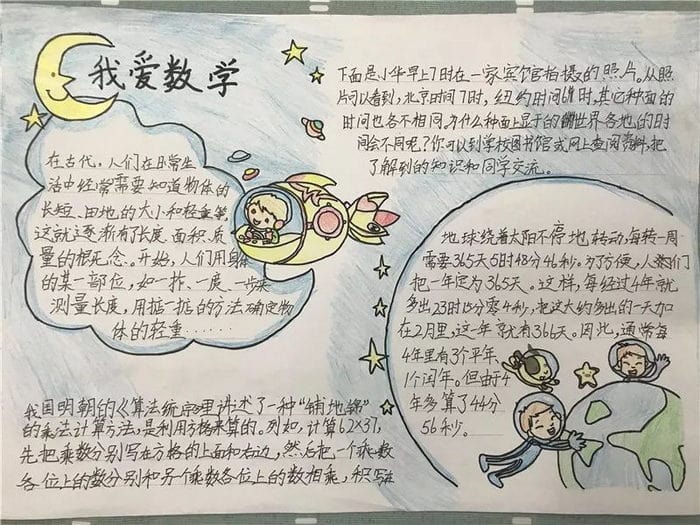 我爱数学
在古代，人们在日常生
活中经常需要知道物体的
长短、田地的大小和轻重等
这就逐渐有了长度、面积、质
量的概念。开始，人们用身体
的某一部位，如一拃、一度、一步来
测量长度，用掂一掂的方法确定物
体的轻重……
下面是小华早上7时在一家宾馆拍摄的照片。从照
片可以看到，北京时间7时，纽约时间时，其它种面的
时间也各不相同。为什么种面上显于的世界各地的时
间会不同呢？你可以到学校图书馆或网上查阅资料，把
了解到的知识和同学交流。
地球绕着太阳不停地转动，每转一周
需要365天5时48分46秒。为了方便，人类们
把一年定为365天。这样，每经过4年就
多出23时15分零4秒，把这大约多出的一天加
在2月里，这一年就有366天。因此，通常每
4年里有3个平年、
1个闰年。但由于4
年多算了44分
56秒。
我国明朝的《算法统宗》里讲述了一种“铺地锦”
的乘法计算方法，是利用方格来算的。列如，计算62×37，
先把乘数分别写在方格的上面和右边，然后把一个乘数
各位上的数分别和另个乘数各位上的数相乘，积写在